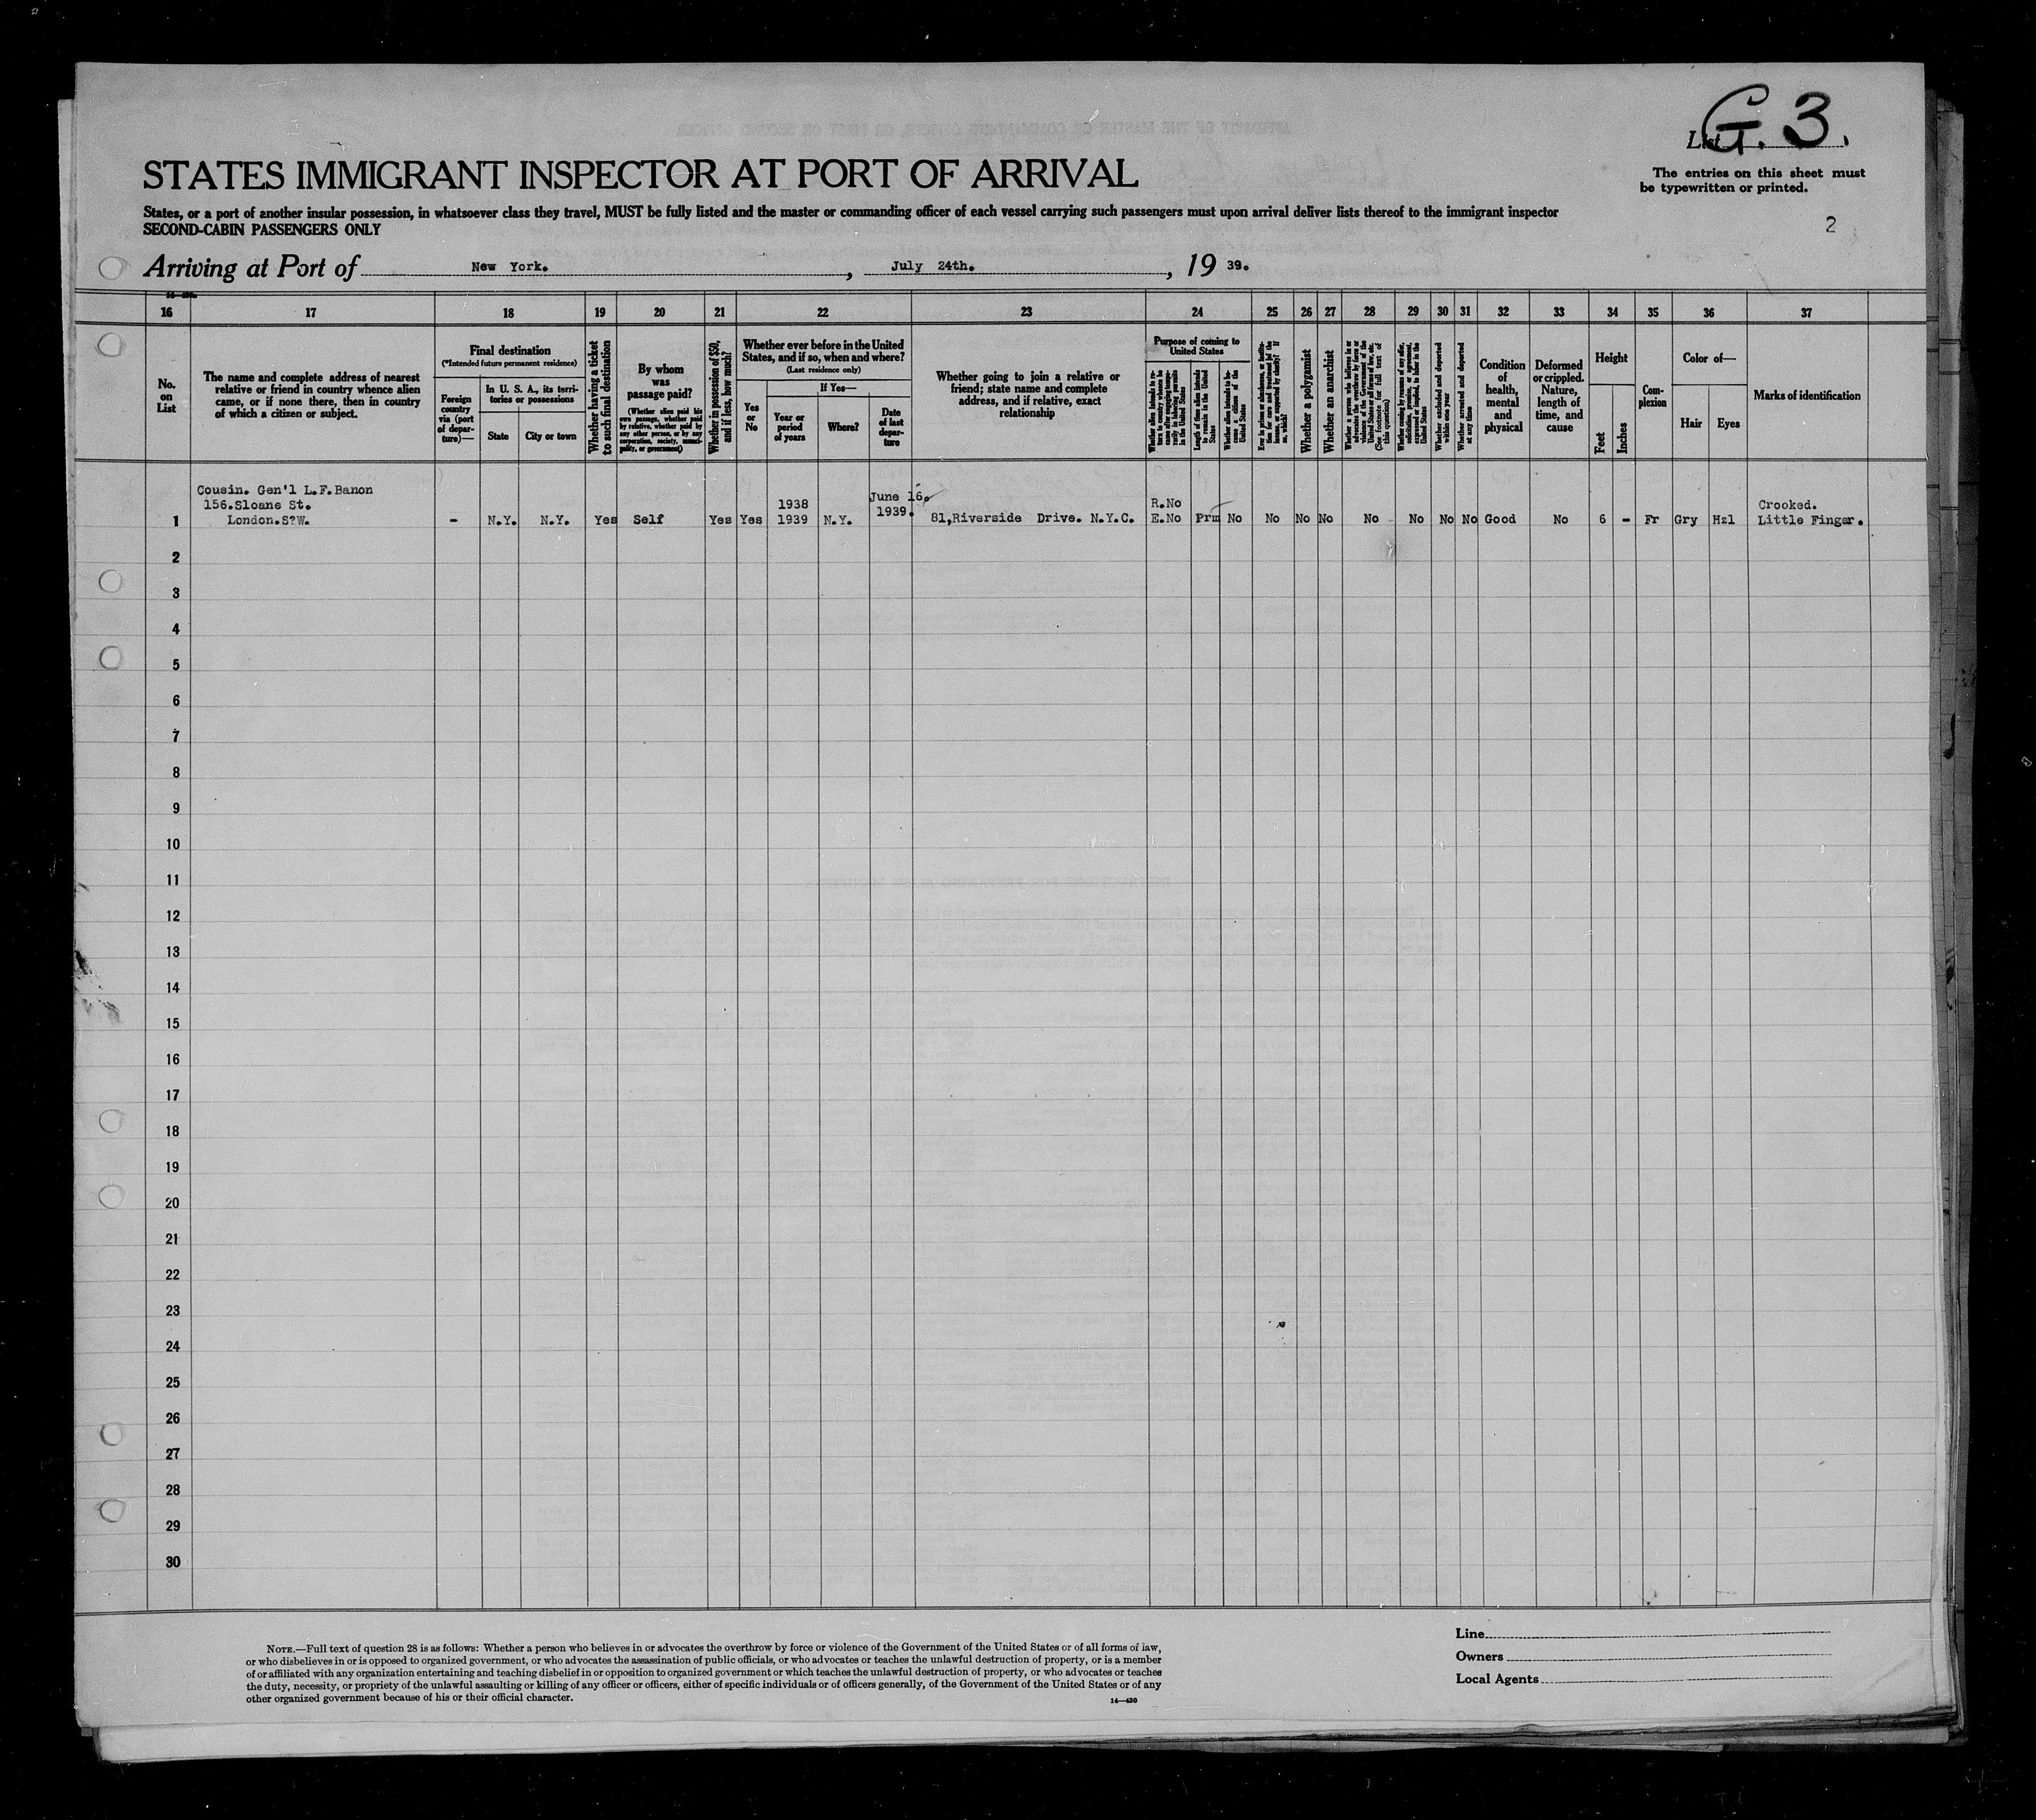 G. 3.
List
STATES IMMIGRANT INSPECTOR AT PORT OF ARRIVAL
The entries on this sheet must
be typewritten or printed.
States, or a port of another insular possession, in whatsoever class they travel, MUST be fully listed and the master or commanding officer of each vessel carrying such passengers must upon arrival deliver lists thereof to the immigrant inspector
SECOND-CABIN PASSENGERS ONLY
2
Arriving at Port of New York. , July 24th. , 19 39.
16 17 18 19 20 21 22 23 24 25 26 27 28 29 30 31 32 33 34 35 36 37
No. on List
The name and complete address of nearest
relative or friend in country whence alien
came, or if none there, then in country
of which a citizen or subject.
Final destination
(*Intended future permanent residence)
Foreign country via (port of depar-ture)—
In U. S. A., its terri-
tories or possessions
State
City or town
Whether having a ticket
to such final destination
By whom
was
passage paid?
(Whether alien paid his
own passage, whether paid
by relative, whether paid by
any other person, or by any
corporation, society, munici-
pality, or government)
Whether in possession of $50,
and if less, how much?
Whether ever before in the United
States, and if so, when and where?
(Last residence only)
Yes
or
No
If Yes—
Year or
period
of years
Where?
Date
of last
depar-
ture
Whether going to join a relative or
friend; state name and complete
address, and if relative, exact
relationship
Purpose of coming to
United States
Length of time alien intends
to remain in the United
States
Whether alien intends to be-
come a citizen of the
United States
Whether a polygamist
Whether an anarchist
(See footnote for full text of
this question)
Whether excluded and deported
within one year
Whether arrested and deported
at any time
Condition
of
health,
mental
and
physical
Deformed
or crippled.
Nature,
length of
time, and
cause
Height
Feet
Inches
Com-
plexion
Color of—
Hair
Eyes
Marks of identification
Cousin. Gen'l L.F.Banon
156.Sloane St.
London.S?W.
1 - N.Y. N.Y. Yes Self Yes Yes 1938 1939 N.Y. June 16. 1939. 81,Riverside Drive. N.Y.C. R.No E.No Prm No No No No No No No No Good No 6 - Fr Gry Hzl Crooked. Little Finger.
2
3
4
5
6
7
8
9
10
11
12
13
14
15
16
17
18
19
20
21
22
23
24
25
26
27
28
29
30
NOTE.—Full text of question 28 is as follows: Whether a person who believes in or advocates the overthrow by force or violence of the Government of the United States or of all forms of law,
or who disbelieves in or is opposed to organized government, or who advocates the assassination of public officials, or who advocates or teaches the unlawful destruction of property, or is a member
of or affiliated with any organization entertaining and teaching disbelief in or opposition to organized government or which teaches the unlawful destruction of property, or who advocates or teaches
the duty, necessity, or propriety of the unlawful assaulting or killing of any officer or officers, either of specific individuals or of officers generally, of the Government of the United States or of any
other organized government because of his or their official character.
14—430
Line
Owners
Local Agents